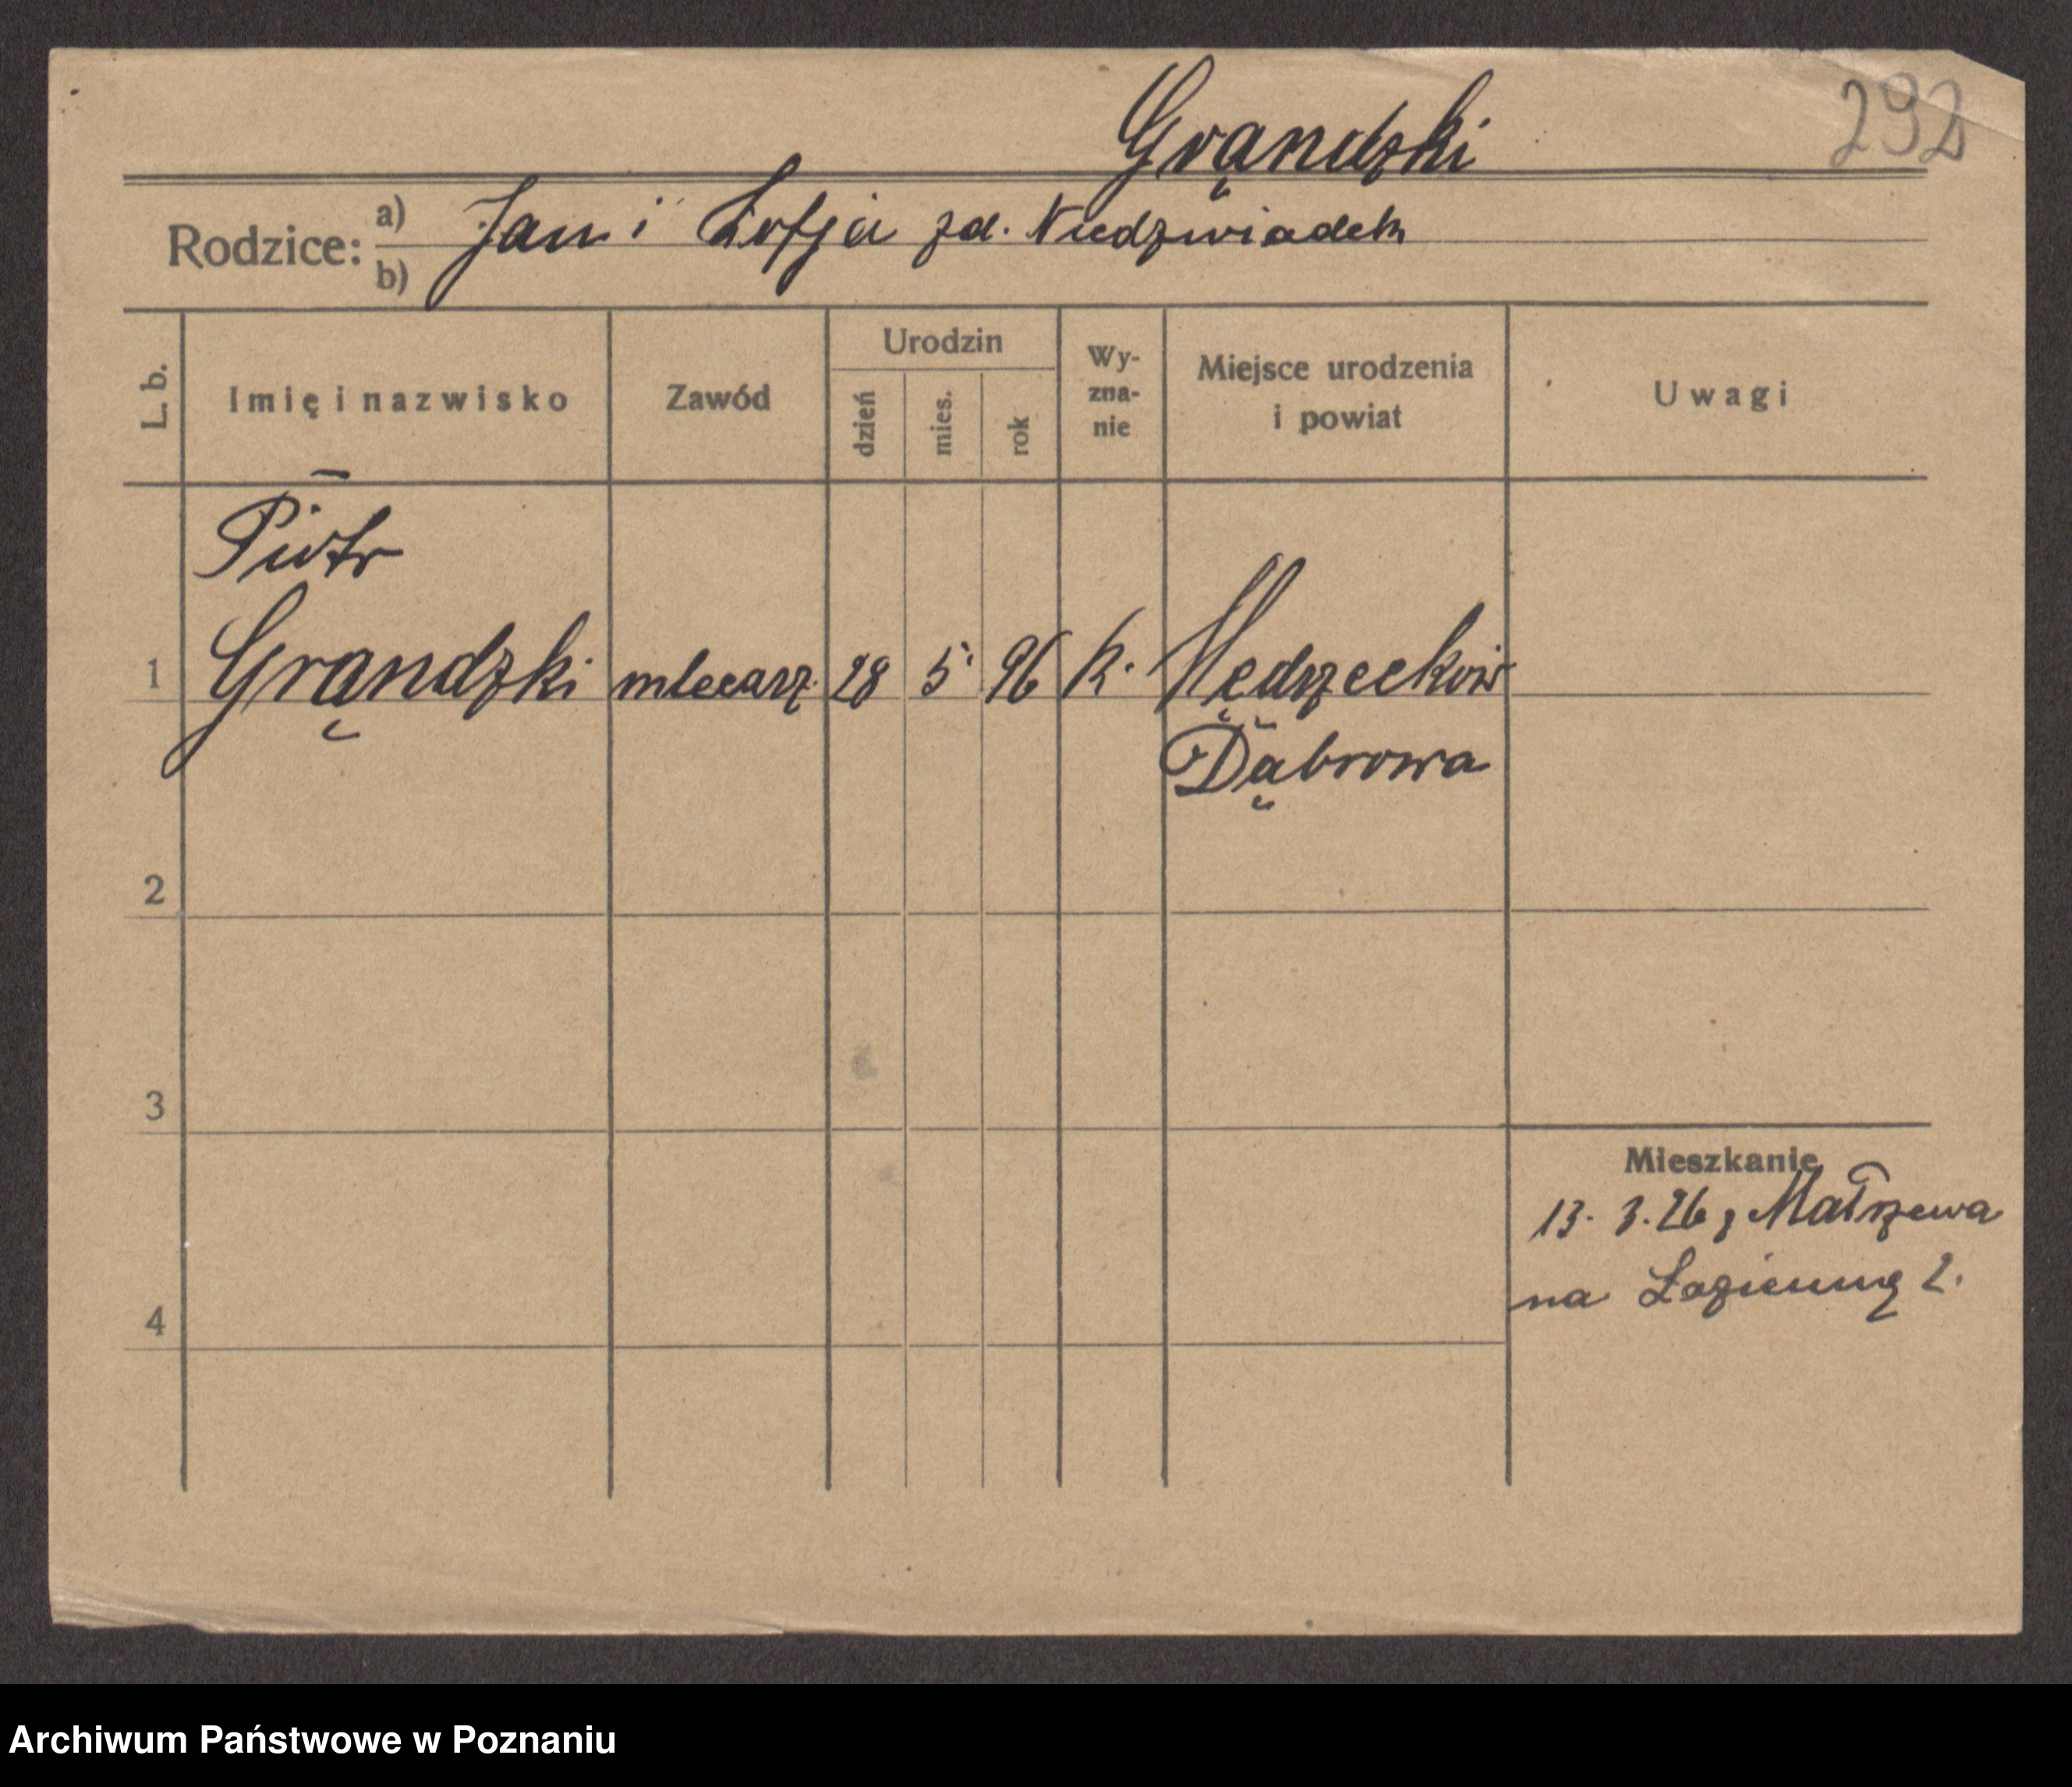 Grąndzki
292
Rodzice: a) Jan i Zofja zd. Niedzwiadek
b)
L. b.
Imię i nazwisko
Zawód
Urodzin
dzień
mies.
rok
Wy-
zna-
nie
Miejsce urodzenia
i powiat
Uwagi
Piotr
1 Grąndzki mlecarz 28 5 96 K.
Dąbrowa
2
3
4
Mieszkanie
13. 3. 26 z
na Łazienną 2.
Archiwum Państwowe w Poznaniu